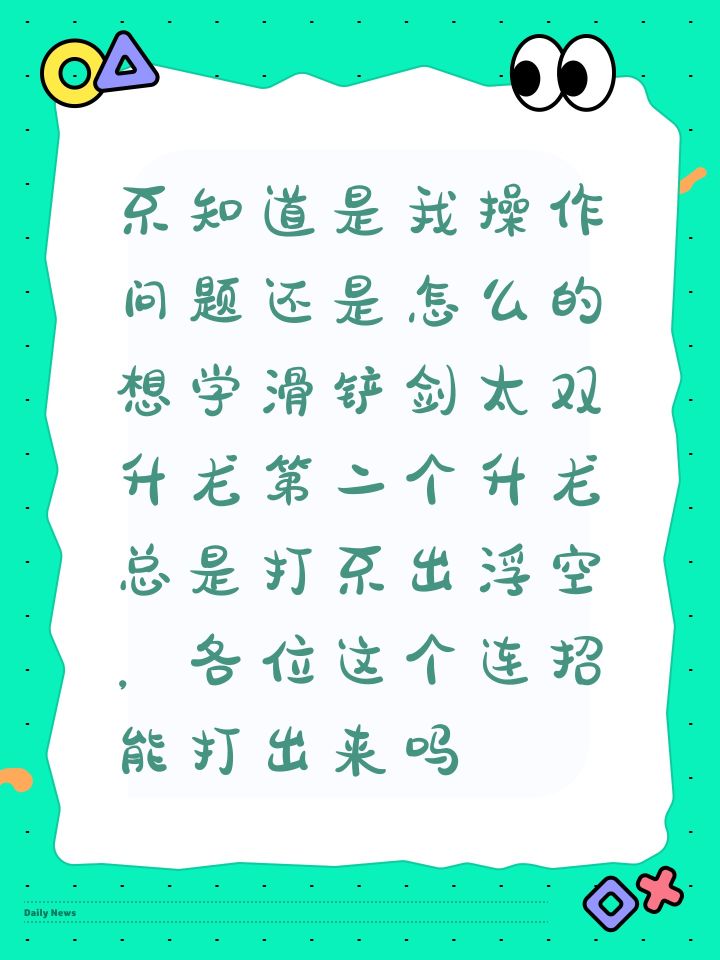 不知道是我操作
问题还是怎么的
想学滑铲剑太双
升龙第二个升龙
总是打不出浮空
，各位这个连招
能打出来吗
Daily News